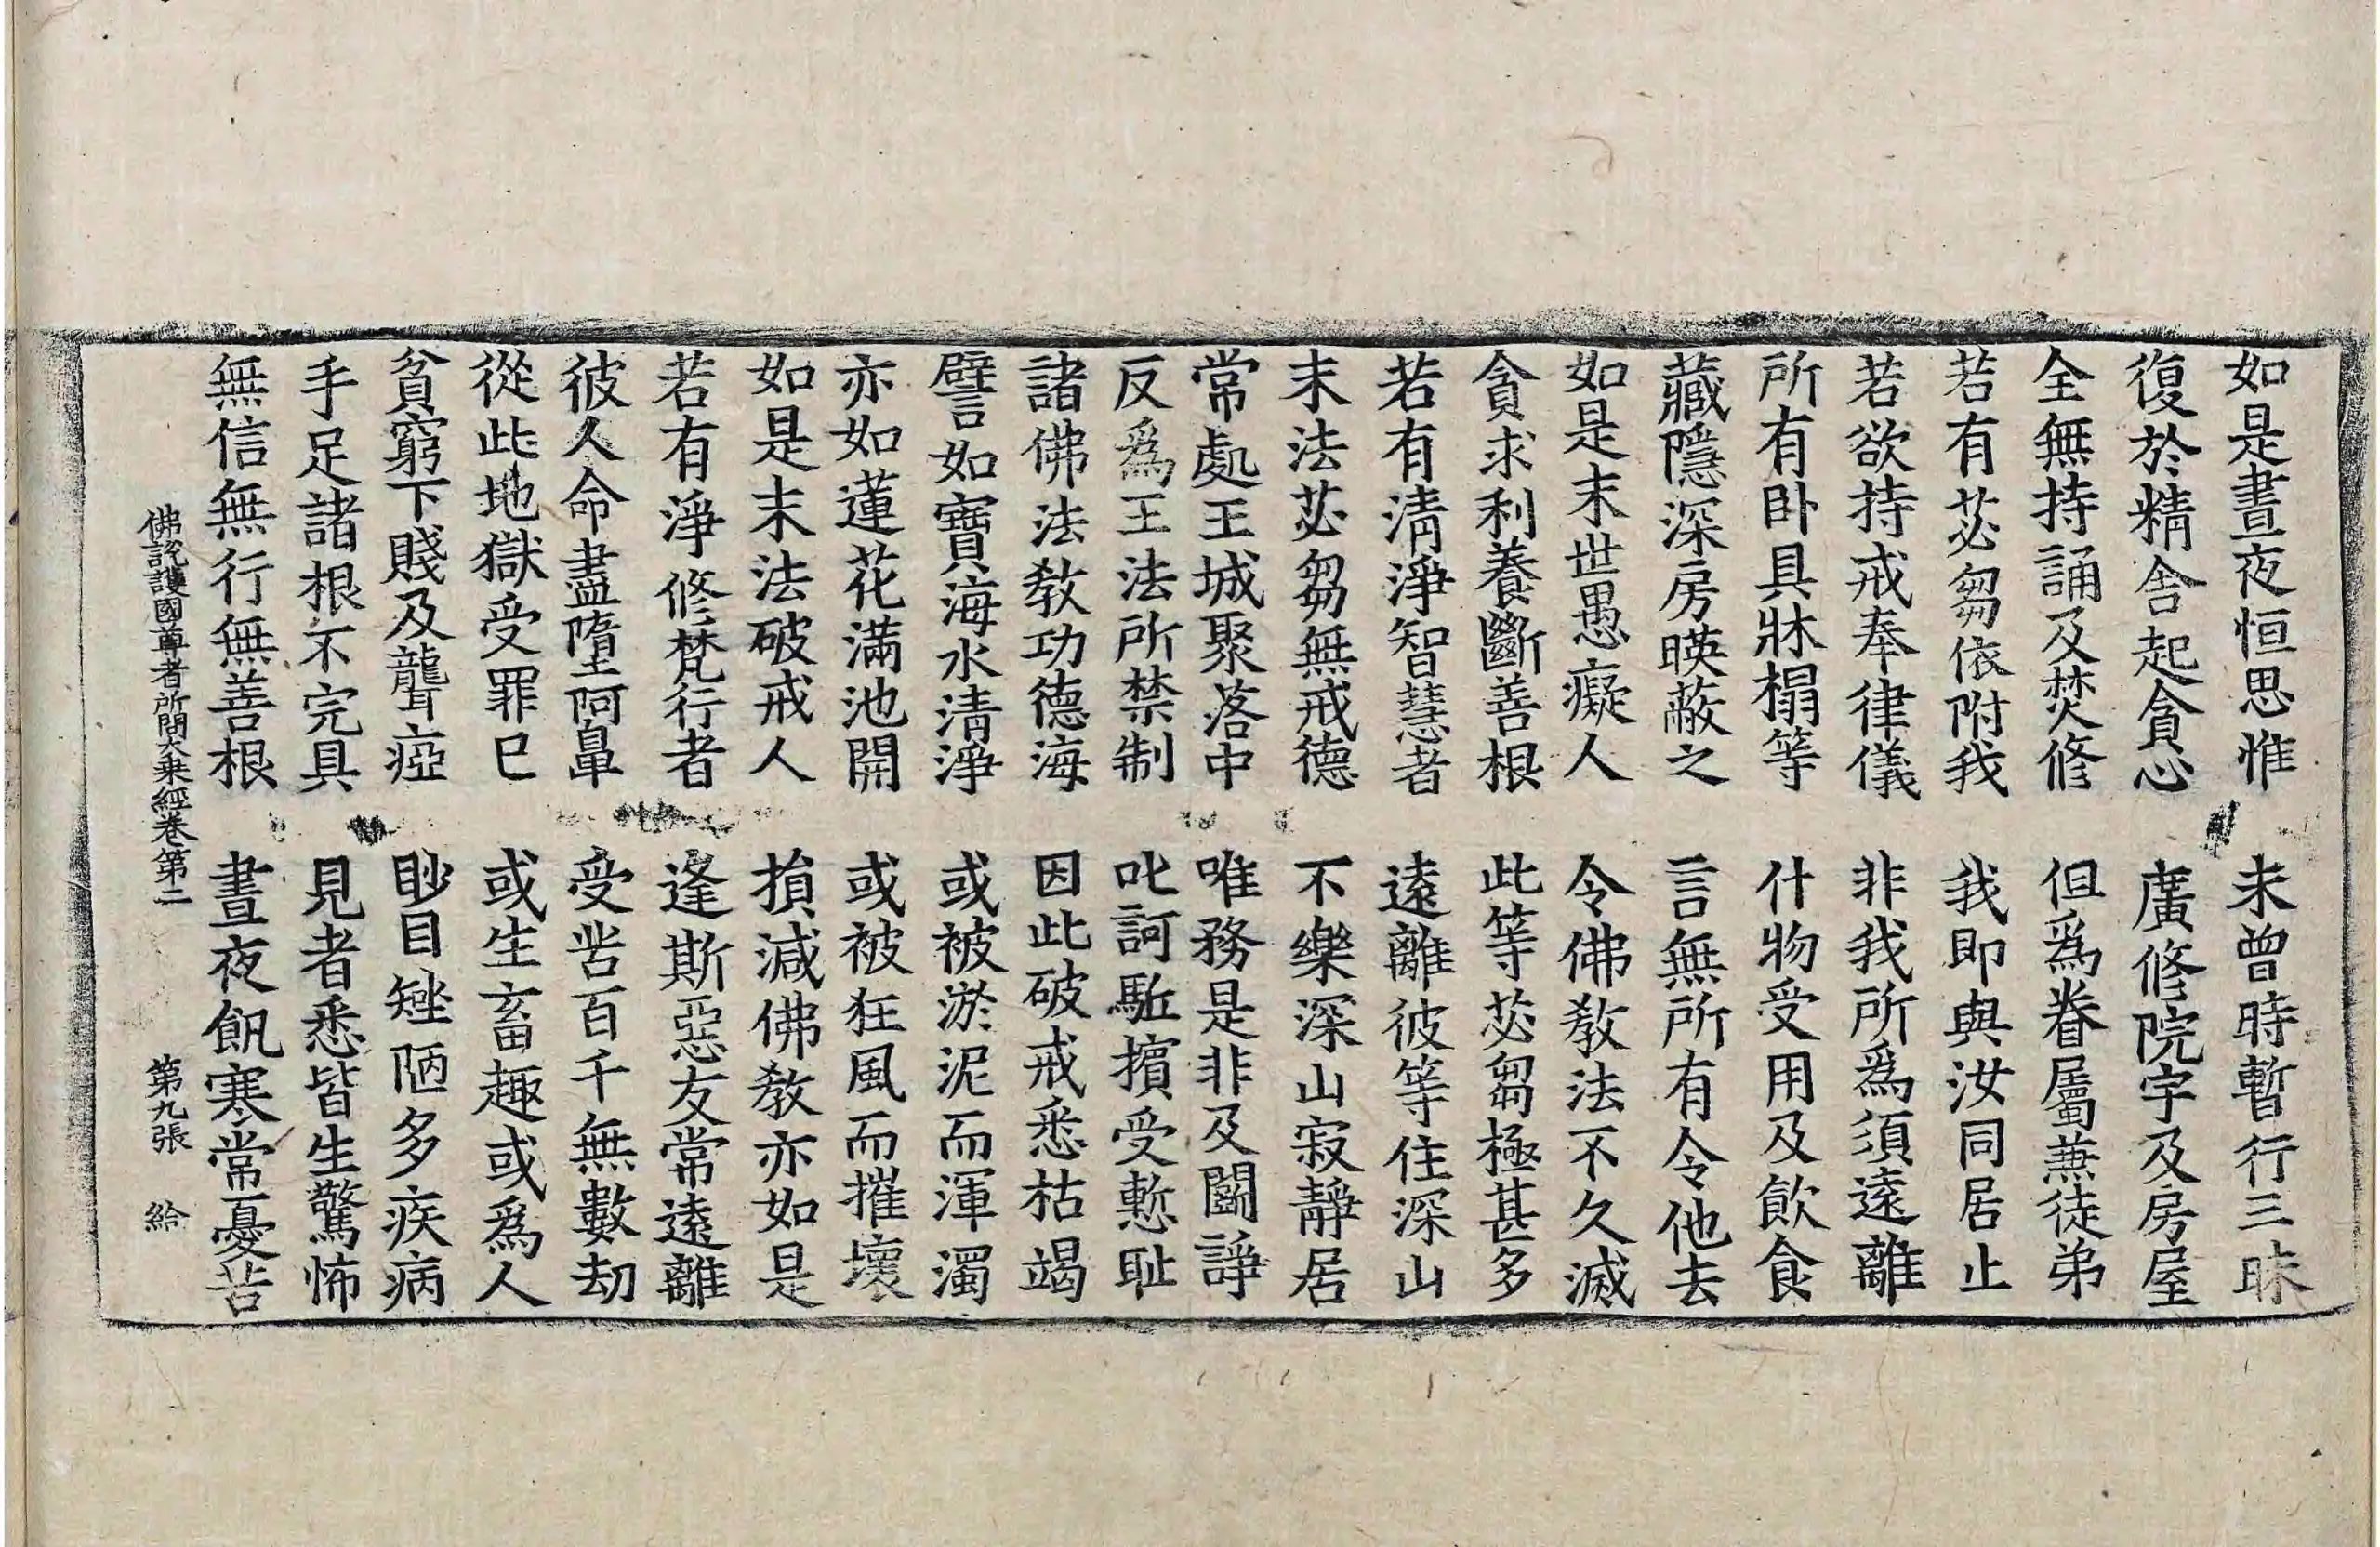 如是晝夜恒思惟　未曾時暫行三昧
復於精舍起貪心　廣修院宇及房屋
全無持誦及焚修　但爲眷屬兼徒弟
若有苾芻依附我　我即與汝同居止
若欲持戒奉律儀　非我所爲須遠離
所有卧具牀榻等　什物受用及飲食
藏隱深房暎蔽之　言無所有令他去
如是末世愚癡人　令佛教法不久滅
貪求利養斷善根　此等苾芻極甚多
若有清淨智慧者　遠離彼等住深山
末法苾芻無戒德　不樂深山寂靜居
常處王城聚落中　唯務是非及鬭諍
反爲王法所禁制　叱訶駈擯受慙耻
諸佛法教功德海　因此破戒悉枯竭
譬如寶海水清淨　或被淤泥而渾濁
亦如蓮花滿池開　或被狂風而摧壞
如是末法破戒人　損減佛教亦如是
若有淨修梵行者　逢斯惡友常遠離
彼人命盡墮阿鼻　受苦百千無數劫
從此地獄受罪已　或生畜趣或爲人
貧窮下賤及聾瘂　眇目矬陋多疾病
手足諸根不完具　見者悉皆生驚怖
無信無行無善根　晝夜飢寒常憂苦
佛說護國尊者所問大乘經卷第二　第九張　給